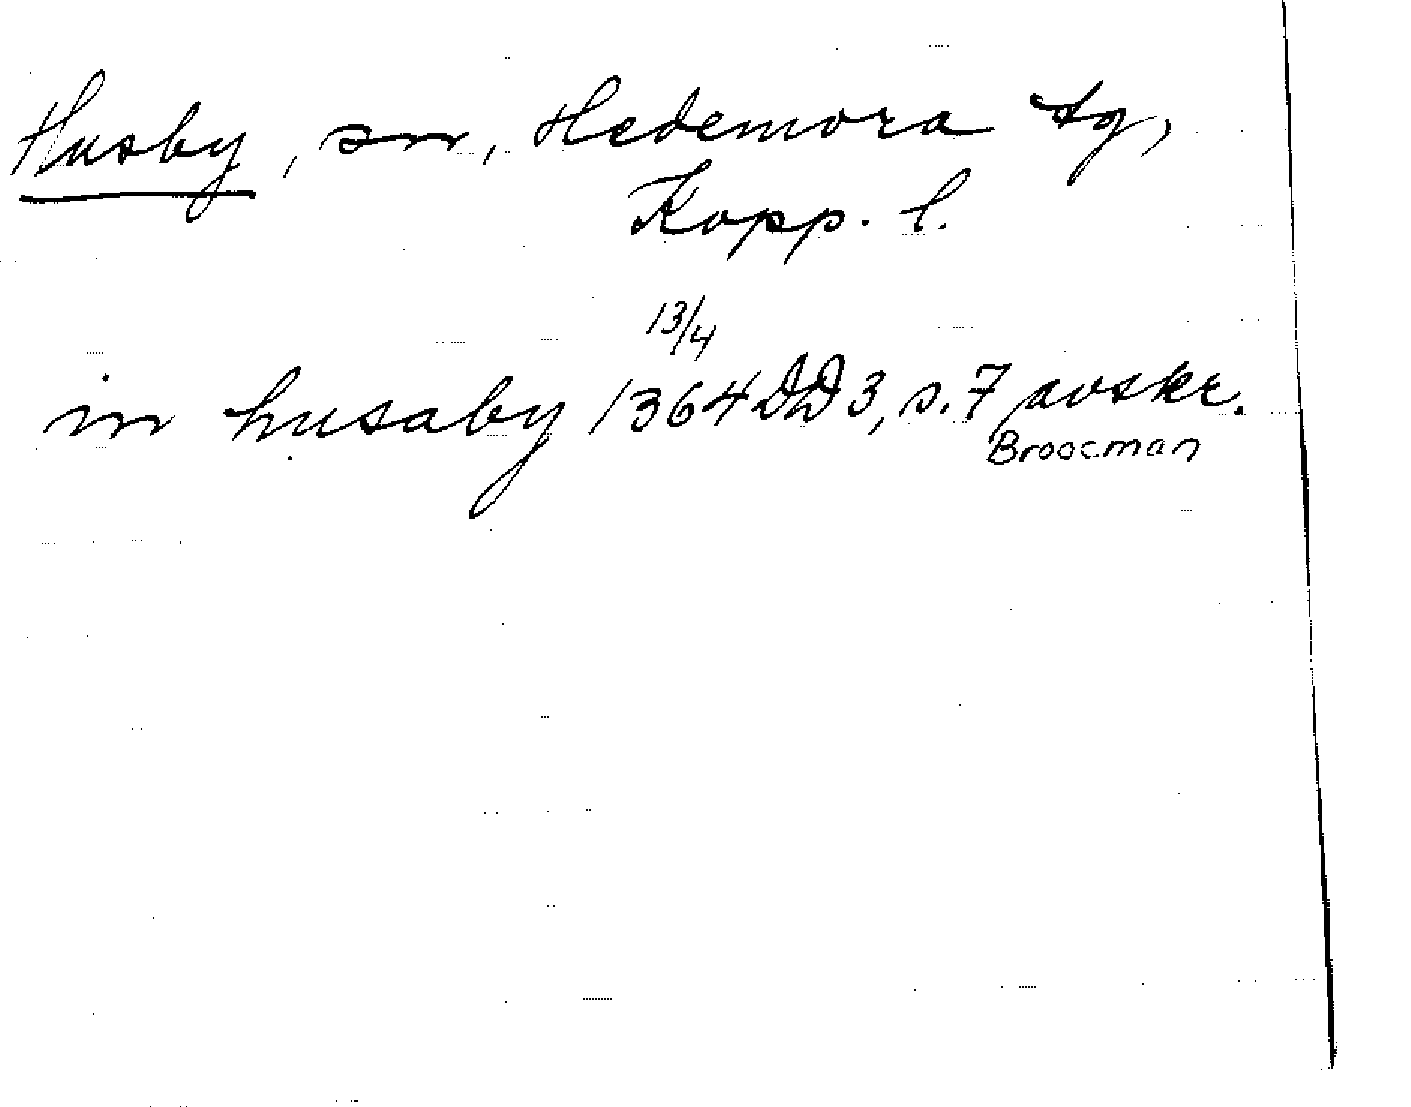 Husby, sn, Hedemora tg,
Kopp. l.
13/4
in husaby 1364 DD 3, s. 7 avskr.
Broocman